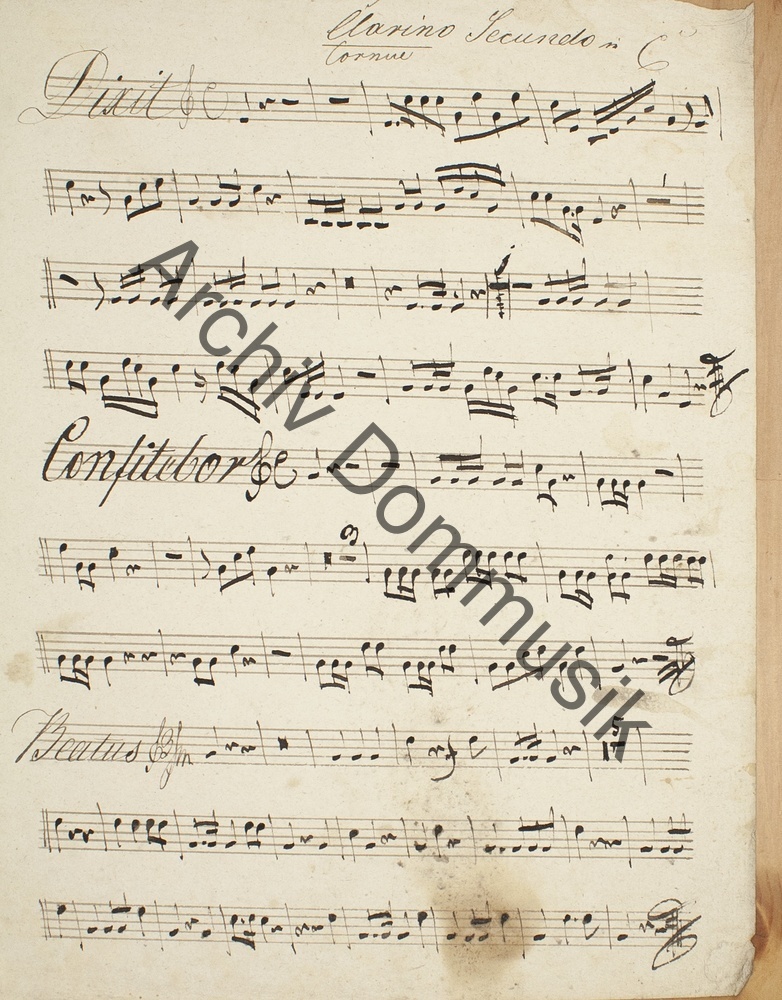 Clarino Secundo in C
Cornuè
Dixit
Confitebor
3
Beatus
15
Archiv Dommusik